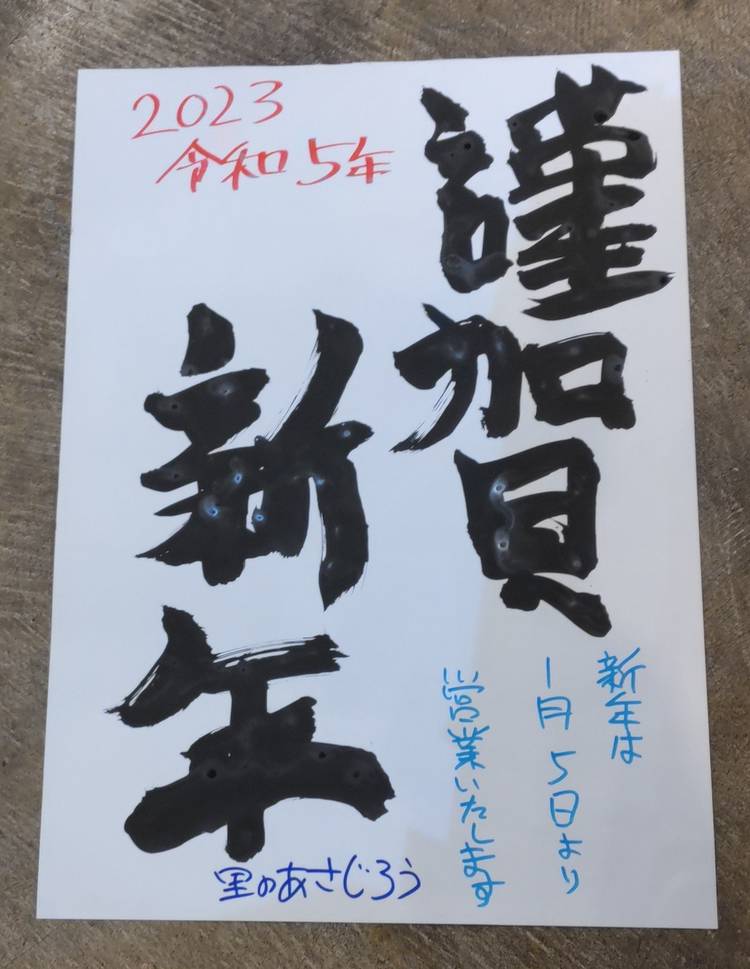 2023
令和5年
謹賀
新年
新年は
1月5日より
営業いたします
里のあさじろう